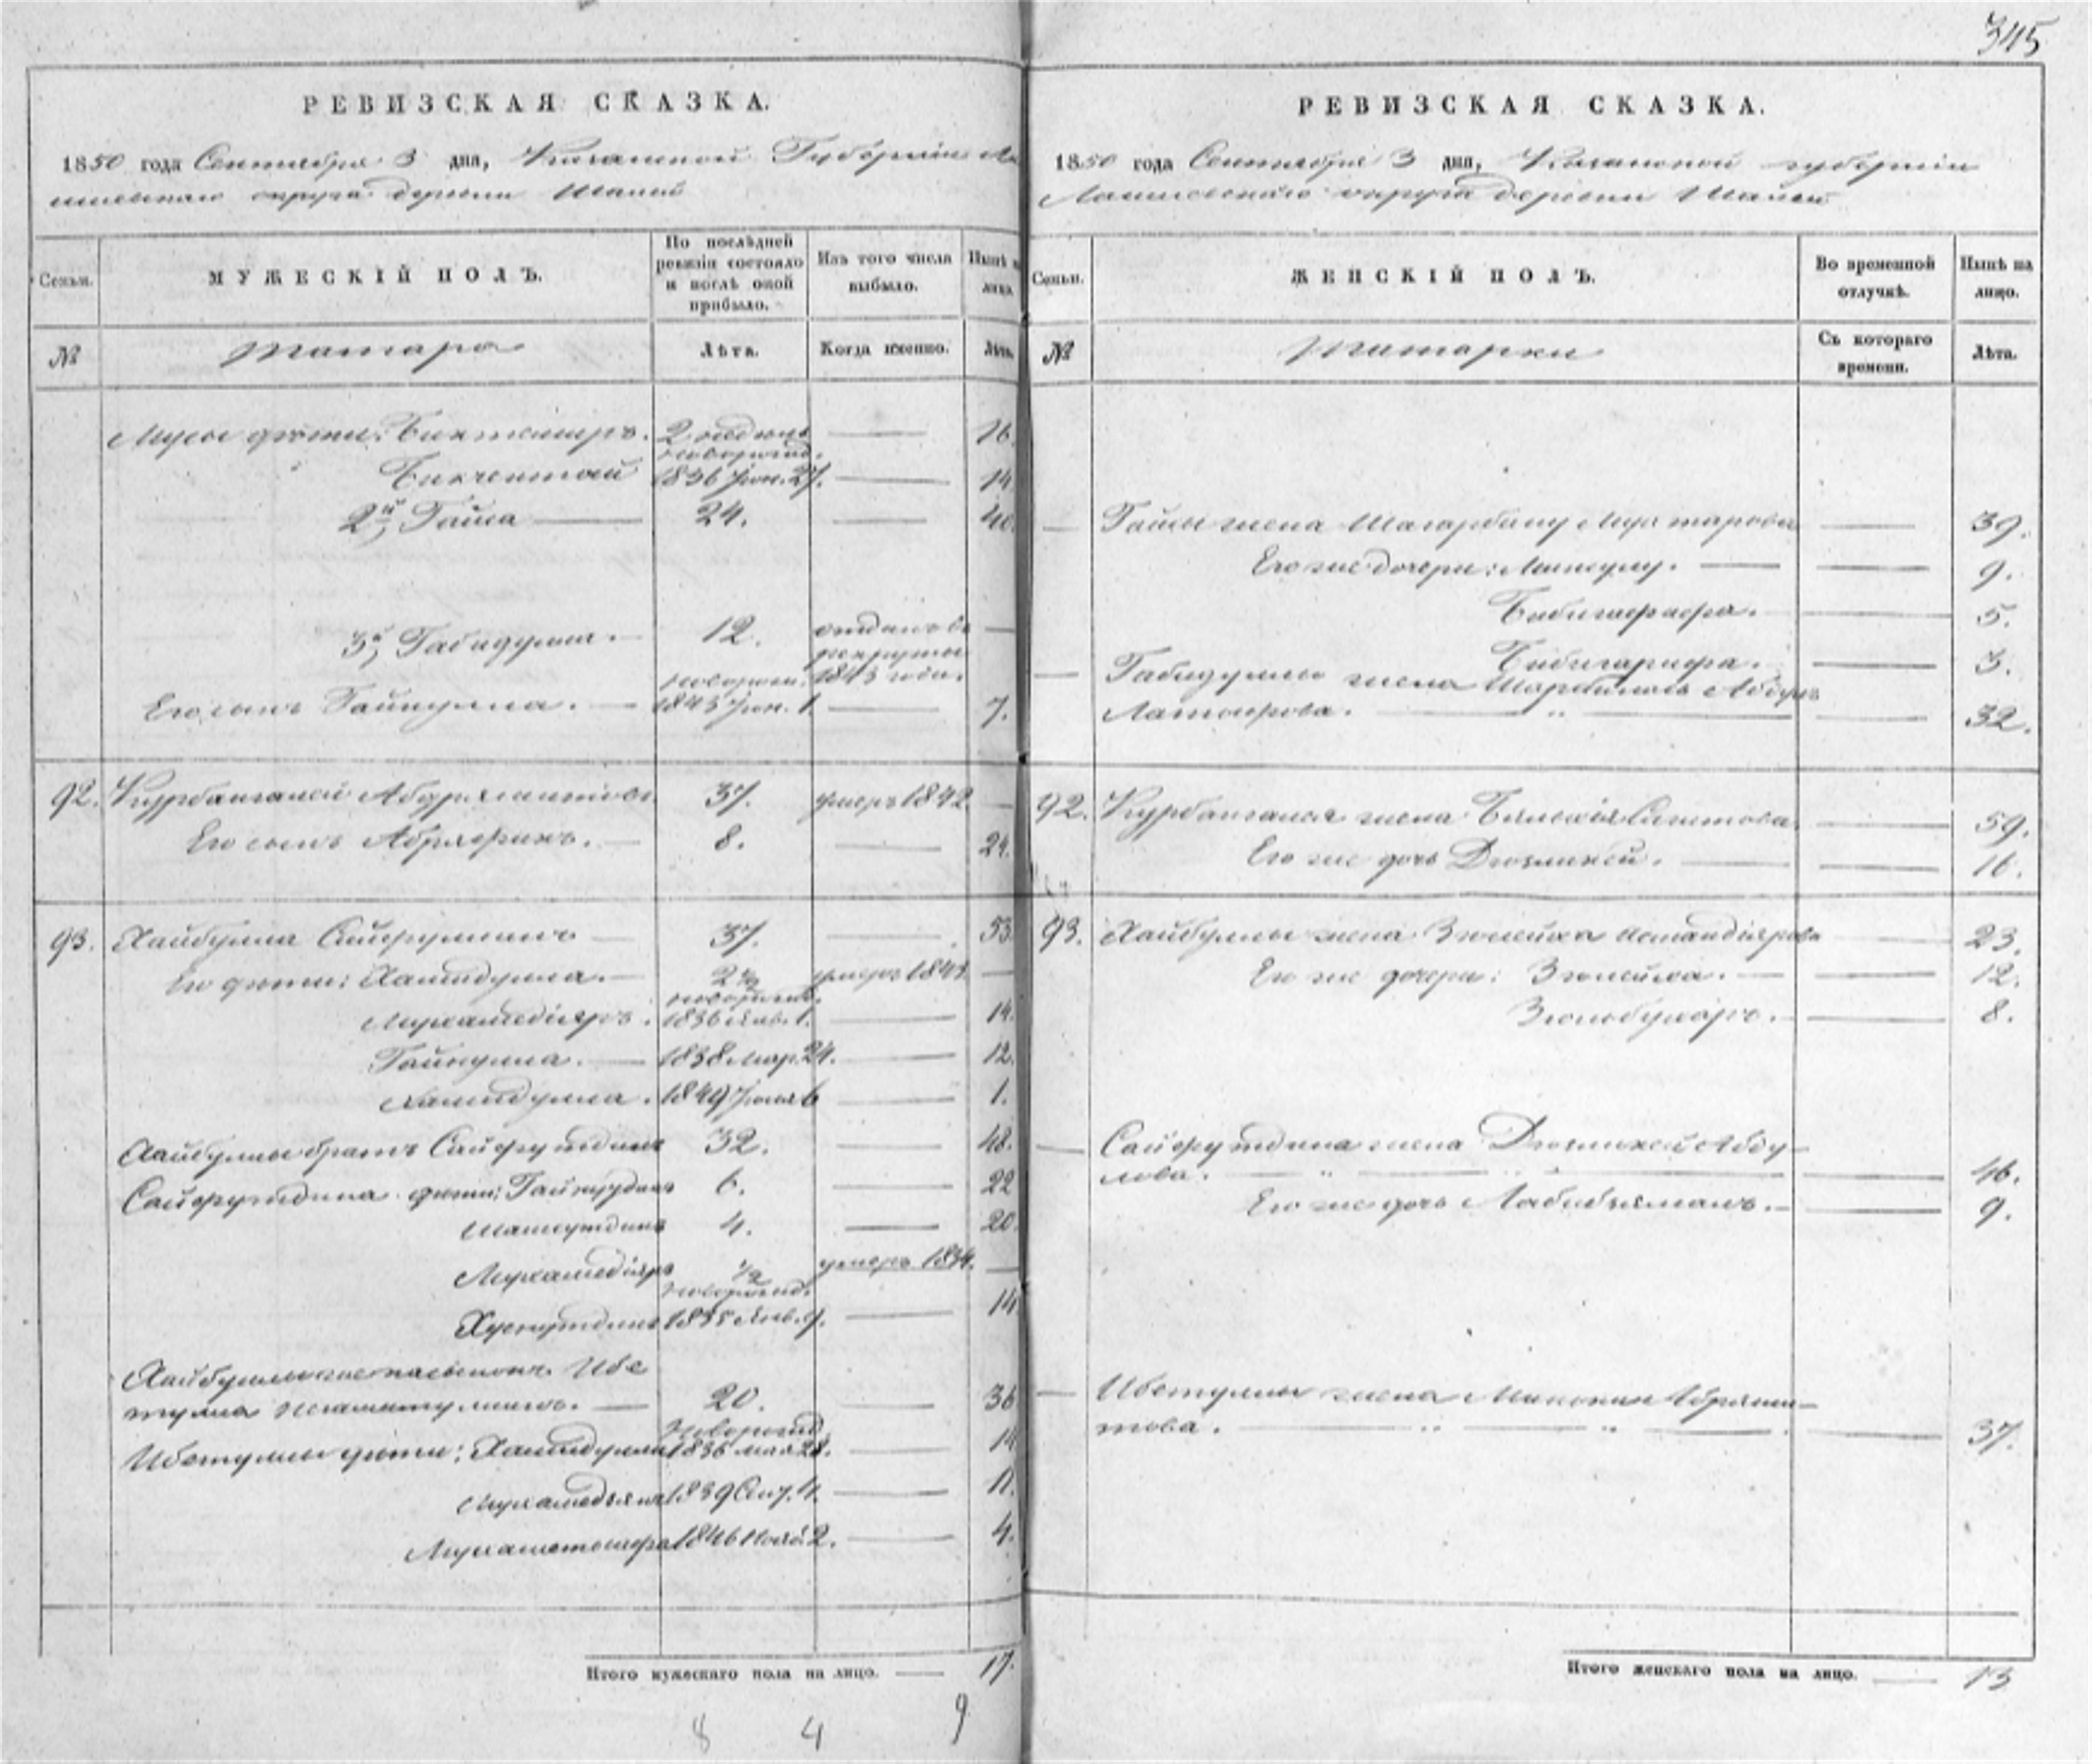 345
РЕВИЗСКАЯ СКАЗКА.
1850 года Сентября 3 дня, Казанской Губернiи Ла
ишевскаго округа деревни Шалей
Семьи.
МУЖЕСКIЙ ПОЛЪ.
По послѣдней ревизiи состояло и послѣ оной прибыло.
Изъ того числа выбыло.
Нынѣ на лицо.
№
Татара
Лѣта.
Когда именно.
Лѣта.
Мусы дѣти: Биктемиръ. 2 недѣль — 16.
новорожд.
Бикчентай 1836 Iюн. 27. — 14
2й, Гайса — 24. — 40.
3й, Габидулла. — 12. отданъ въ —
рекруты
новорожд. 1843 года.
Его сынъ Гайнулла. — 1843 Iюн. 1. — 7.
92. Курбангалей Абдряшитовъ 37. умеръ 1842. —
Его сынъ Абдряфикъ. — 8. — 24.
93. Хайбулла Сайфуллинъ — 37. — 53
Его дѣти: Хамидулла. — 2½ умеръ 1843. —
новорожд.
Мухамедiяръ. 1836 Янв. 1. — 14.
Гайнулла. — 1838 Мар. 24. — 12.
Хамидулла. 1849 Iюля 6 — 1.
Хайбуллы братъ Сайфутдинъ 32. — 48.
Сайфутдина дѣти: Гайнутдинъ 6. — 22
Шамсутдинъ 4. — 20.
Мухамедiяръ ½ умеръ 1834. —
новорожд.
Хуснутдинъ 1835 Янв. 9. — 14
Хайбуллы же пасынокъ Ибе
тулла Негаматуллинъ. — 20. — 36
Новорожд.
Ибетуллы дѣти: Хамидулла 1836 мая 28. — 14
Мухамедзянъ 1839 Сен. 11. — 11.
Мухаметшафа 1846 Нояб. 2. — 4.
Итого мужескаго пола на лицо. — 17.
8 4 9
РЕВИЗСКАЯ СКАЗКА.
1850 года Сентября 3 дня, Казанской губернiи
Лаишевскаго округа деревни Шалей
Семьи.
ЖЕНСКIЙ ПОЛЪ.
Во временной отлучкѣ.
Нынѣ на лицо.
№
Татарки
Съ котораго времени.
Лѣта.
— Гайсы жена Шагарбану Мухтарова — 39.
Его же дочери: — 9.
Бибишарифа. — 5.
Бибигарифа. — 3.
— Габидуллы жена Шарбиямалъ Абдулъ
Латыпова. — " — 32.
92. Курбангалея жена Сагитова — 59.
Его же дочь Дюзликей. — 16.
93. Хайбуллы жена Зюлейха Искандiярова — 23.
Его же дочери: Зюлейха. — 12.
Зюльбухаръ. — 8.
— Сайфутдина жена Дюзликей Абду-
лова. — " — " — 46.
Его же дочь Лабибзямалъ. — 9.
— Ибетуллы жена Абряши-
това. — " — " — 37.
Итого женскаго пола на лицо. — 13